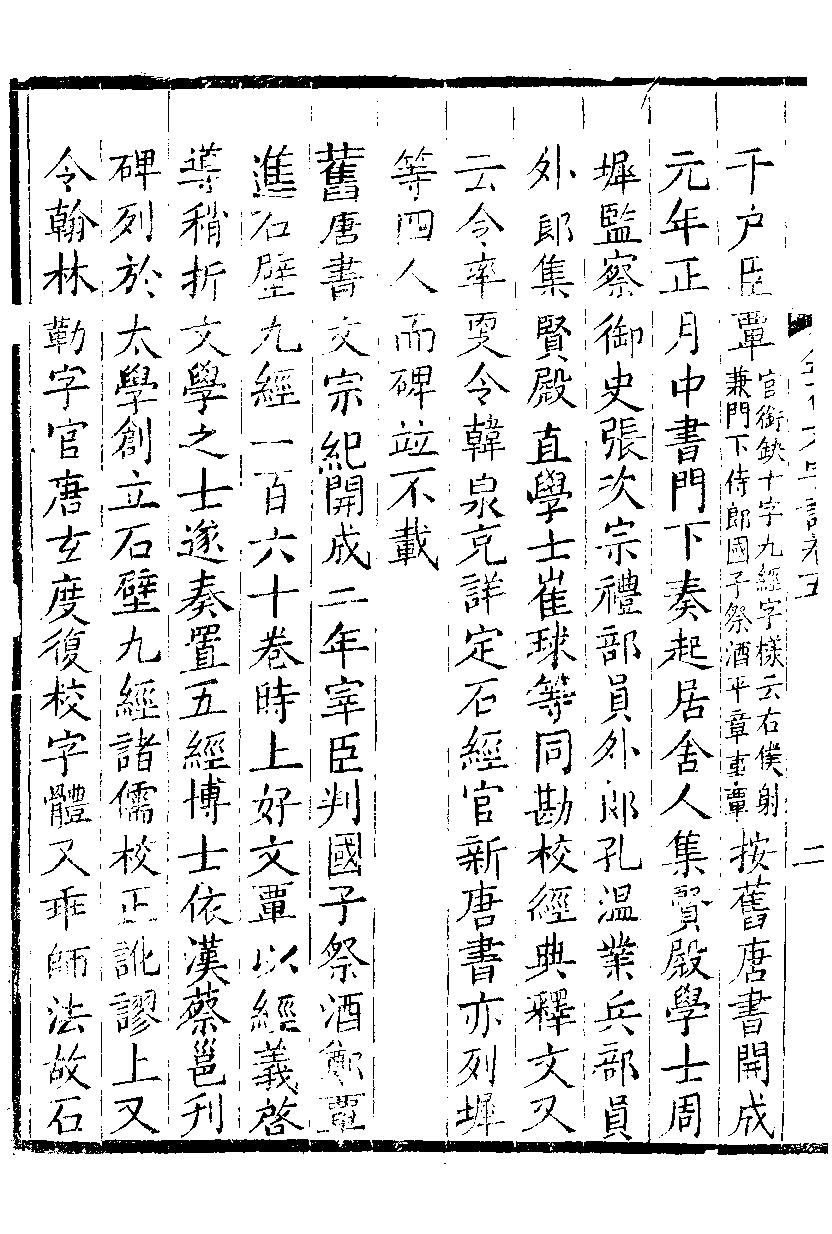 千户臣覃官銜缺十字九經字樣云右僕射兼門下侍郎國子祭酒平章事覃按舊唐書開成
元年正月中書門下奏起居舍人集賢殿學士周
墀監察御史張次宗禮部員外郎孔温業兵部員
外郎集賢殿直學士崔球等同勘校經典釋文又
云令率更令韓泉充詳定石經官新唐書亦列墀
等四人而碑竝不載
舊唐書文宗紀開成二年宰臣判國子祭酒鄭覃
進石壁九經一百六十卷時上好文覃以經義啓
導稍折文學之士遂奏置五經博士依漢蔡邕刊
碑列於太學創立石壁九經諸儒校正訛謬上又
令翰林勒字官唐玄度復校字體又乖師法故石
二